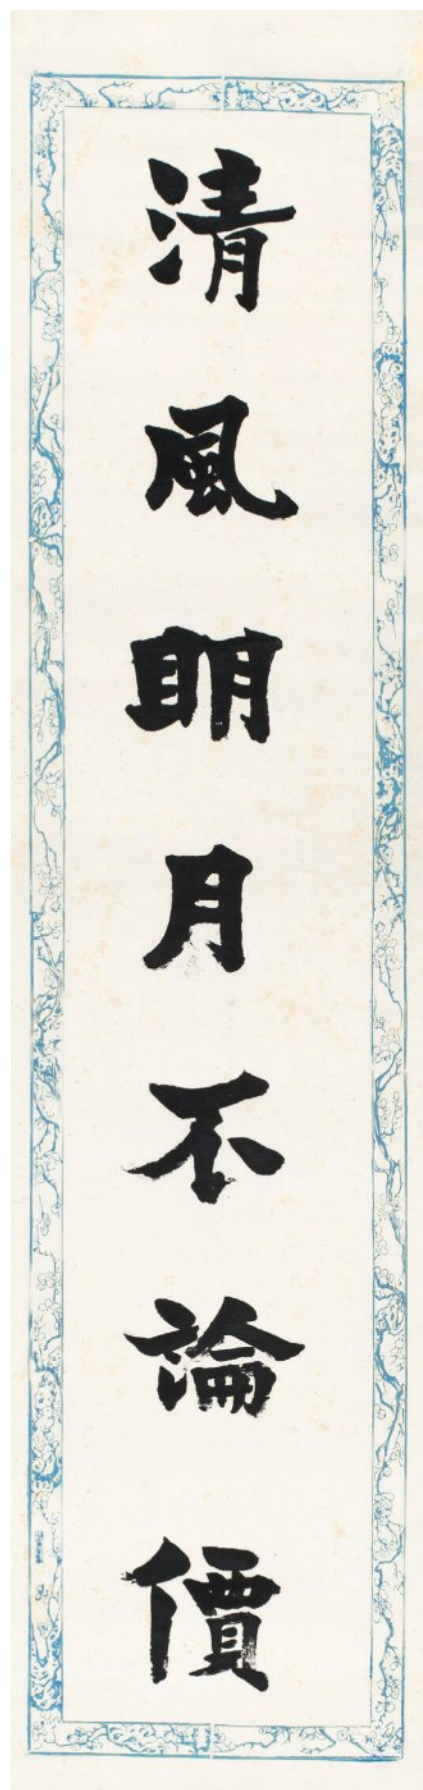 清風明月不論價